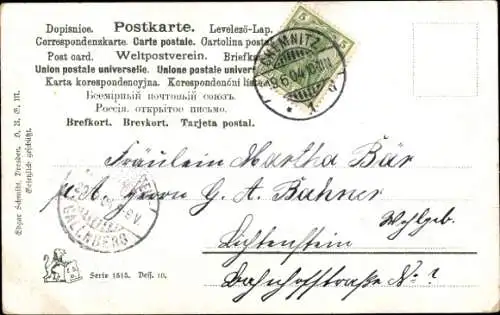 Dopisnice. Postkarte. Levelező-Lap.
Correspondenzkarte. Carte postale. Cartolina postale
Post card. Weltpostverein. Briefka
Union postale universelle. Unione postale univer
Karta korespondencyjna. Korespondenční líste
Всемірный почтовый союзъ.
Россія. открытое письмо.
Brefkort. Brevkort. Tarjeta postal.
5 5
CHEMNITZ
6.04
Fräulein Martha Bär
Herrn G. A. Bahner
Wohlgeb.
Lichtenstein
Bahnhofstraße No
CALLNBERG
Edgar Schmidt, Dresden. D. R. G. M.
Gesetzlich geschützt.
Serie 1515. Dess. 10.